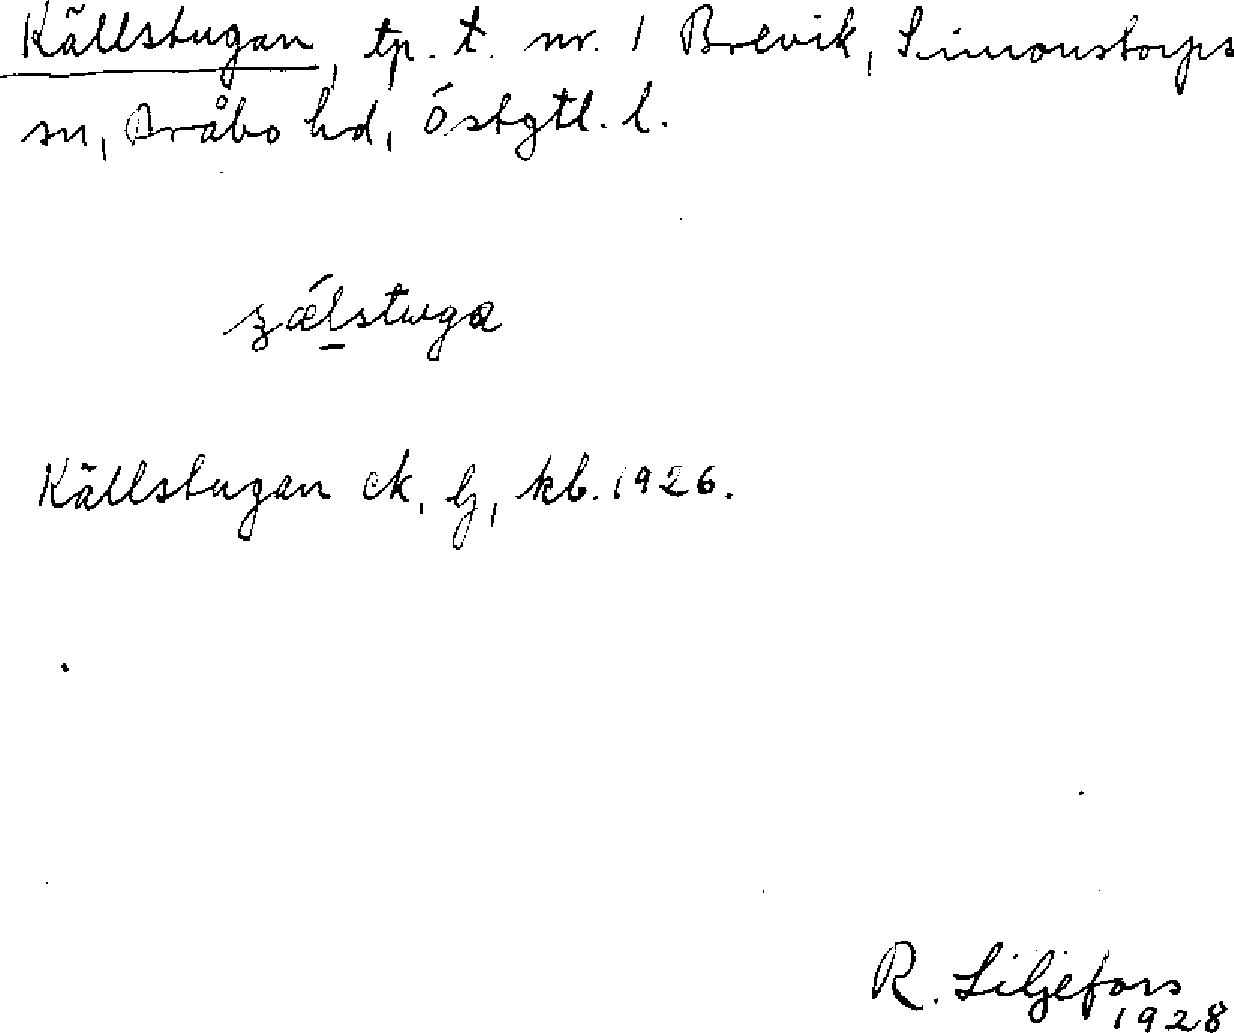 Källstugan, tp. t. nr. 1 Brevik, Simonstorps
sn, Bråbo hd, Östgtl. l.
ʂǽl̲stuga
Källstugan ek, lj, kb. 1926.
R. Liljefors
1928